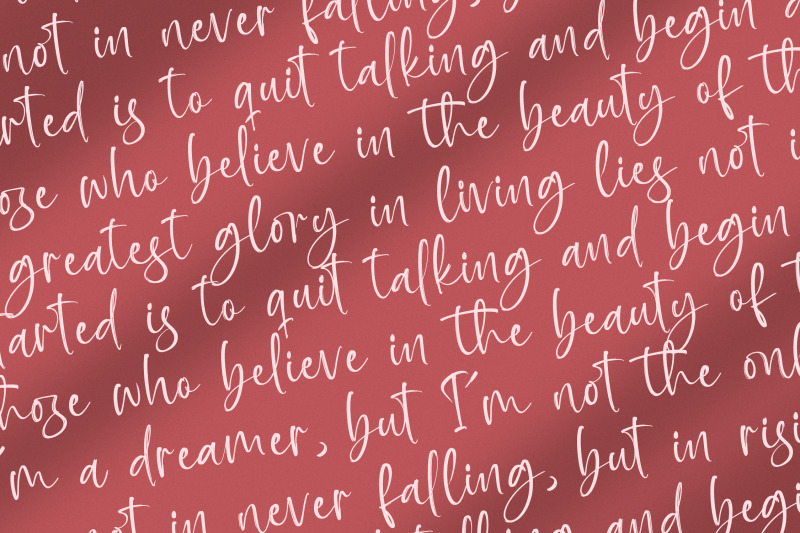 not in never falling,
arted is to quit talking and begin
hose who believe in the beauty of th
greatest glory in living lies not i
arted is to quit talking and begin
those who believe in the beauty of t
'm a dreamer, but I'm not the onl
not in never falling, but in risi
talking and begi